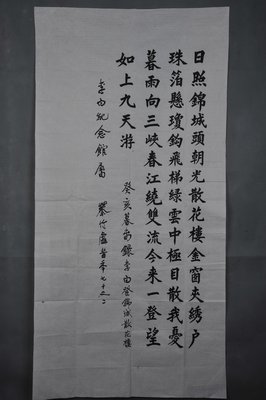 日照錦城頭朝光散花樓金窗夾綉户
珠箔懸瓊鈎飛梯綠雲中極目散我憂
暮雨向三峽春江繞雙流今来一登望
如上九天游
癸亥暮春錄李白登錦城散花樓
李白紀念館屬